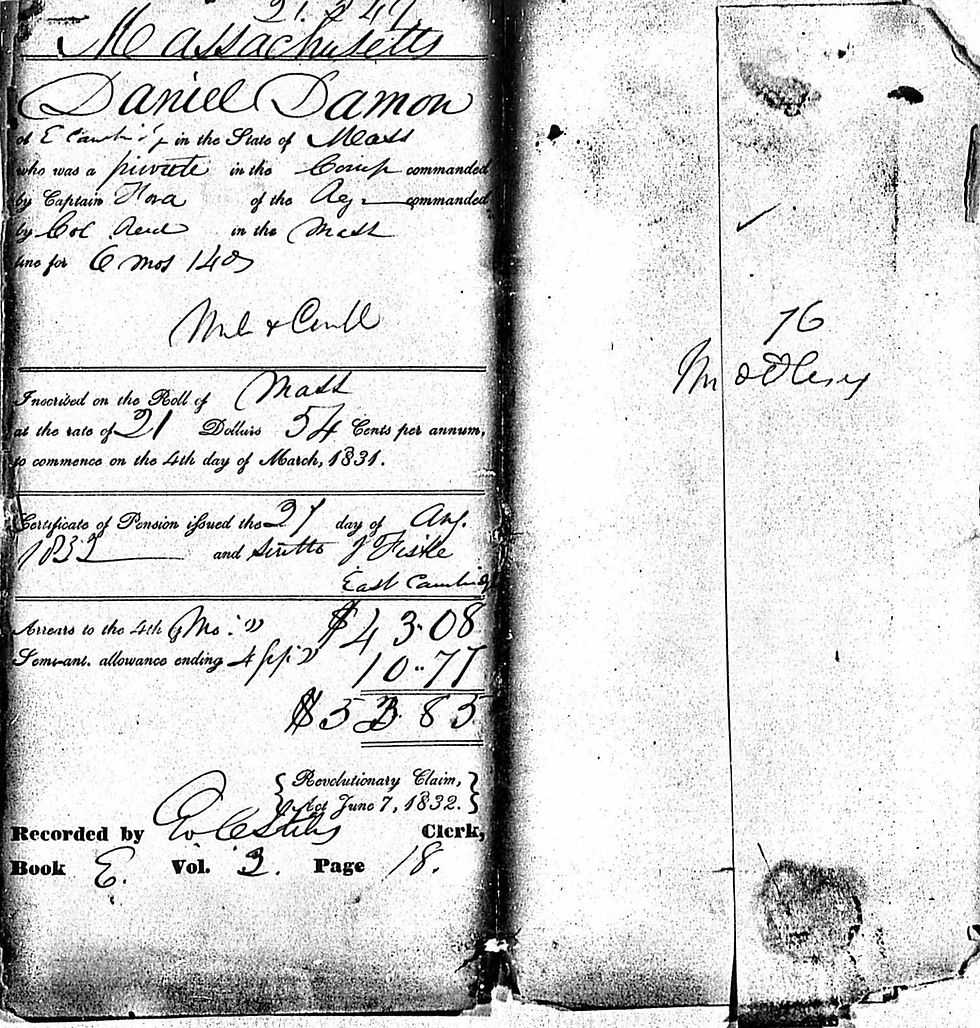 21.247
Massachusetts
Daniel Damon
of E Cambg in the State of Mass
who was a private in the Comp commanded
by Captain of the Reg commanded
by Col Reed in the Mass
line for 6 mos 14 ds
Inscribed on the Roll of Mass
at the rate of 21 Dollars 54 Cents per annum,
to commence on the 4th day of March, 1831.
Certificate of Pension issued the 27 day of Aug.
1832 and sent to J Fiske
East Cambridge
Arrears to the 4th of Mar. $43.08
Semi-ant. allowance ending 4 Sep. 10.77
$53.85
{Revolutionary Claim,
Act June 7, 1832.}
Recorded by Clerk,
Book E. Vol. 2. Page 18.
76